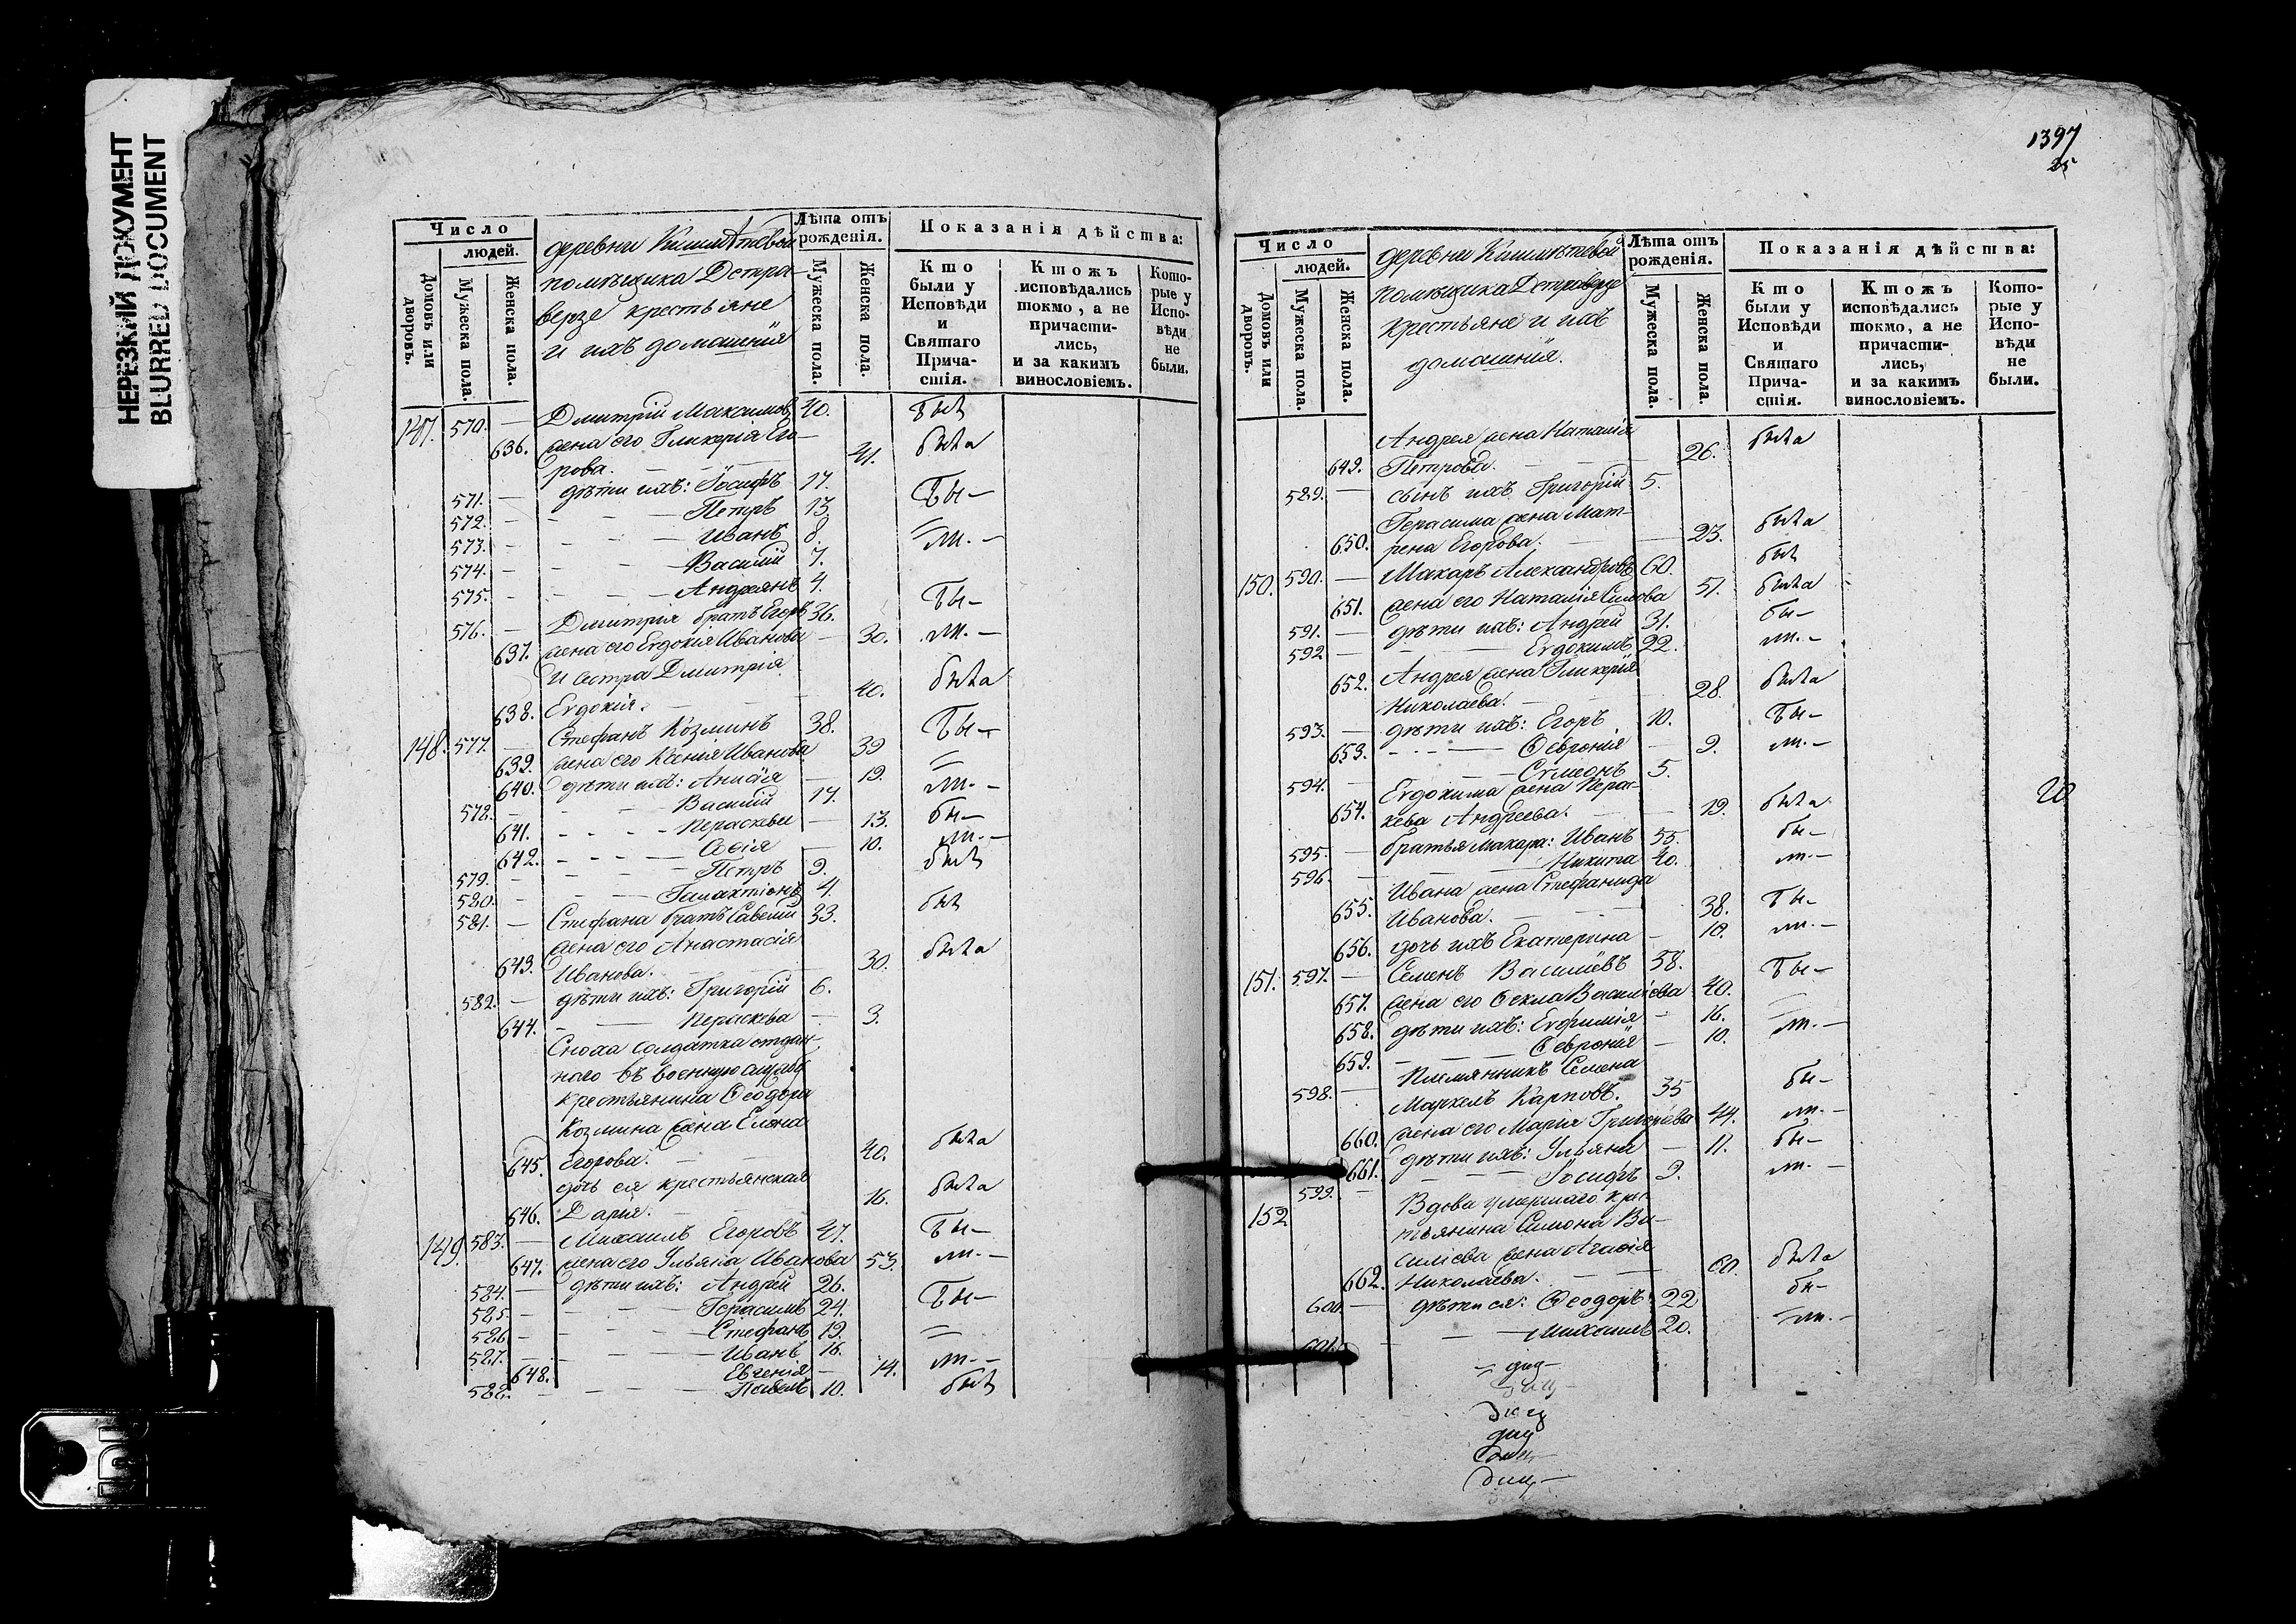 НЕРЕЗКИЙ ДОКУМЕНТ
BLURRED DOCUMENT
Число
людей.
Домовъ или дворовъ.
Мужеска пола.
Женска пола.
деревни
помѣщика Детра-
верзе крестьяне
и ихъ домашнія
Лѣта отъ рожденія.
Мужеска пола.
Женска пола.
Показанія дѣйства:
Кто были у Исповѣди и Святаго Причастія.
Ктожъ исповѣдались токмо, а не причастились, и за какимъ винословіемъ.
Которые у Исповѣди не были.
147. 570. — Дмитрій Максимовъ 40. былъ
636. жена его Гликерія Его-
рова. — 41. была
571. — дѣти ихъ: Іосифъ 17. бы—
572. — Петръ 13.
573. — Иванъ 8. ли. —
574. — Василій 7.
575. — Андреянъ 4.
576. — Дмитрія братъ Егоръ 36. бы—
637. жена его Евдокія Иванова — 30. ли. —
и сестра Дмитрія
638. Евдокія. — 40. была
148. 577. — Стефанъ Козминъ 38. бы—
639. жена его Ксенія Иванова 39
640. дѣти ихъ: Анисія — 19.
578. — Василій 17. ли. —
641. — Параскевы — 13. бы—
642. — Софія — 10. ли. —
579. — Петръ 9. былъ
580. — Галактіонъ 4.
581. — Стефана братъ Савелій 33. былъ
жена его Анастасія
643. Иванова. — 30. была
582. — дѣти ихъ: Григорій 6.
644. — Параскева — 3.
Сноха солдатка отдан-
наго въ военную службу
крестьянина Ѳеодора
Козмина жена Елена
645. Егорова. — 40. была
дочь ея крестьянская
646. Дарія. — 16. была
149. 583. — Михаилъ Егоровъ 47. бы—
647. жена его Ульяна Иванова 53. ли. —
584. — дѣти ихъ: Андрей 26.
585. — Герасимъ 24. бы—
586. — Стефанъ 19.
587. — Иванъ 16.
648. Евгенія — 14. ли. —
588. — Павелъ 10. былъ
1397
25
Число
людей.
Домовъ или дворовъ.
Мужеска пола.
Женска пола.
деревни
помѣщика Детраверзе
крестьяне и ихъ
домашнія.
Лѣта отъ рожденія.
Мужеска пола.
Женска пола.
Показанія дѣйства:
Кто были у Исповѣди и Святаго Причастія.
Ктожъ исповѣдались токмо, а не причастились, и за какимъ винословіемъ.
Которые у Исповѣди не были.
Андрея жена Наталія
649. Петрова. — 26. была
589. — сынъ ихъ Григорій 5.
Герасима жена Мат-
650. рена Егорова. — 23. была
150. 590. — Макаръ Александровъ 60. былъ
651. жена его Наталія Силова 51. была
591. — дѣти ихъ: Андрей 31. бы—
592 — Евдокимъ 22. ли. —
652. Андрея жена Гликерія
Николаева. — 28. была
593. — дѣти ихъ: Егоръ 10. бы—
653. — Ѳевронія — 9. ли. —
594. — Сѵмеонъ 5.
Евдокима жена Парас-
654. кева Андреева. — 19. была
595. — братья Макара: Иванъ 55. бы—
596. — Никита 40. ли. —
Ивана жена Стефанида
655. Иванова. — 38. бы—
656. дочь ихъ Екатерина — 10. ли. —
151. 597. — Семенъ Василіевъ 58. бы—
657. жена его Ѳекла Василіева 40.
658. дѣти ихъ: Евфимія — 16.
659. — Ѳевронія — 10. ли. —
Племянникъ Семена
598. — Маркелъ Карповъ. 35 бы—
660. жена его Марія Григоріева 44. ли. —
661. дѣти ихъ: Ульяна — 11. бы—
599. — Іосифъ 9. ли. —
152 Вдова умершаго крес-
тьянина Симона Ва-
силіева жена Агафія
662. Николаева. — 60. была
600. — дѣти ея: Ѳеодоръ 22 бы—
601. — Михаилъ 20. ли. —
20